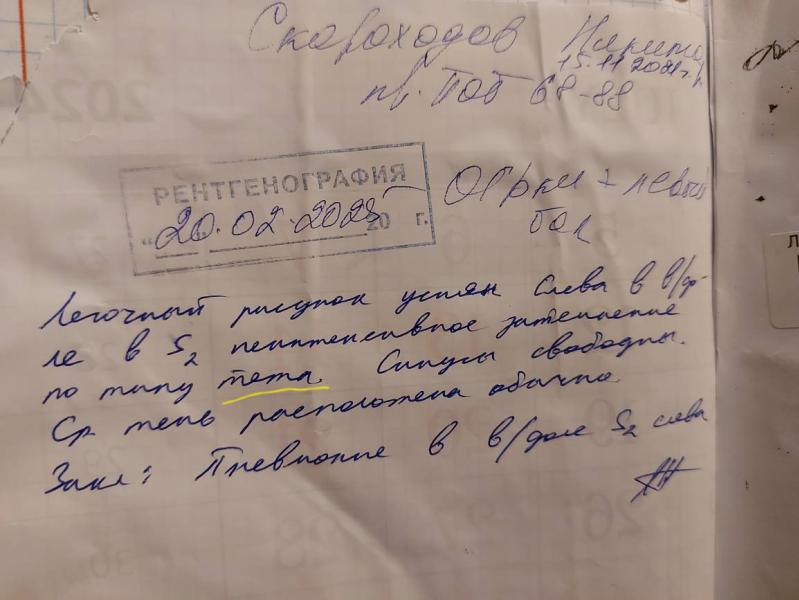 Скороходов Никита
15.11.2021г.
пр. Поб 68-88
2024
РЕНТГЕНОГРАФИЯ
ОГркл + левый
бок
"20.02.2025 20 г.
Легочный рисунок усилен Слева в в/до-
ле в S2 неинтенсивное затемнение
по типу тета. Синусы свободны.
Ср. тень расположена обычно.
Закл: Пневмония в в/доле S2 слева